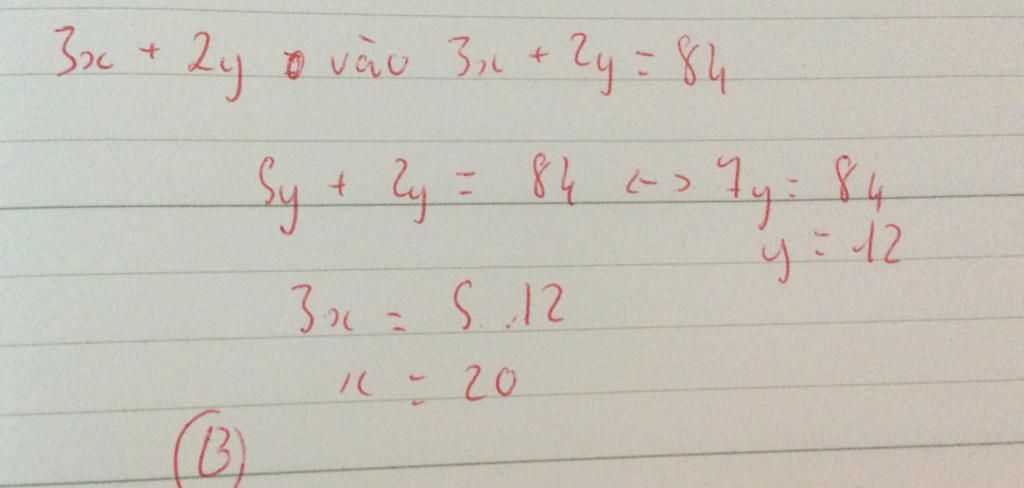 3x + 2y vào 3x + 2y = 84
5y + 2y = 84 <-> 7y = 84
y = 12
3x = 5.12
x = 20
B